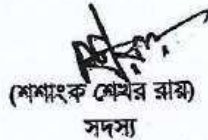 (শশাংক শেখর রায়)
সদস্য